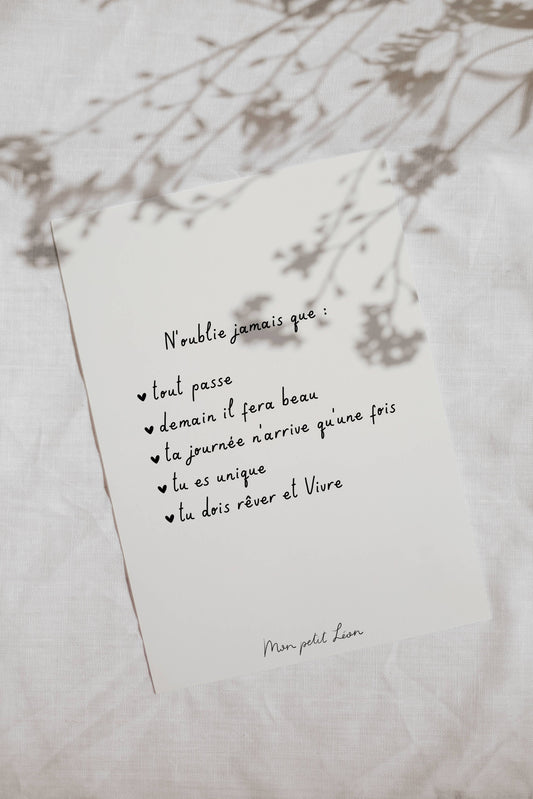 N'oublie jamais que :
♥ tout passe
♥ demain il fera beau
♥ ta journée n'arrive qu'une fois
♥ tu es unique
♥ tu dois rêver et Vivre
Mon petit Léon